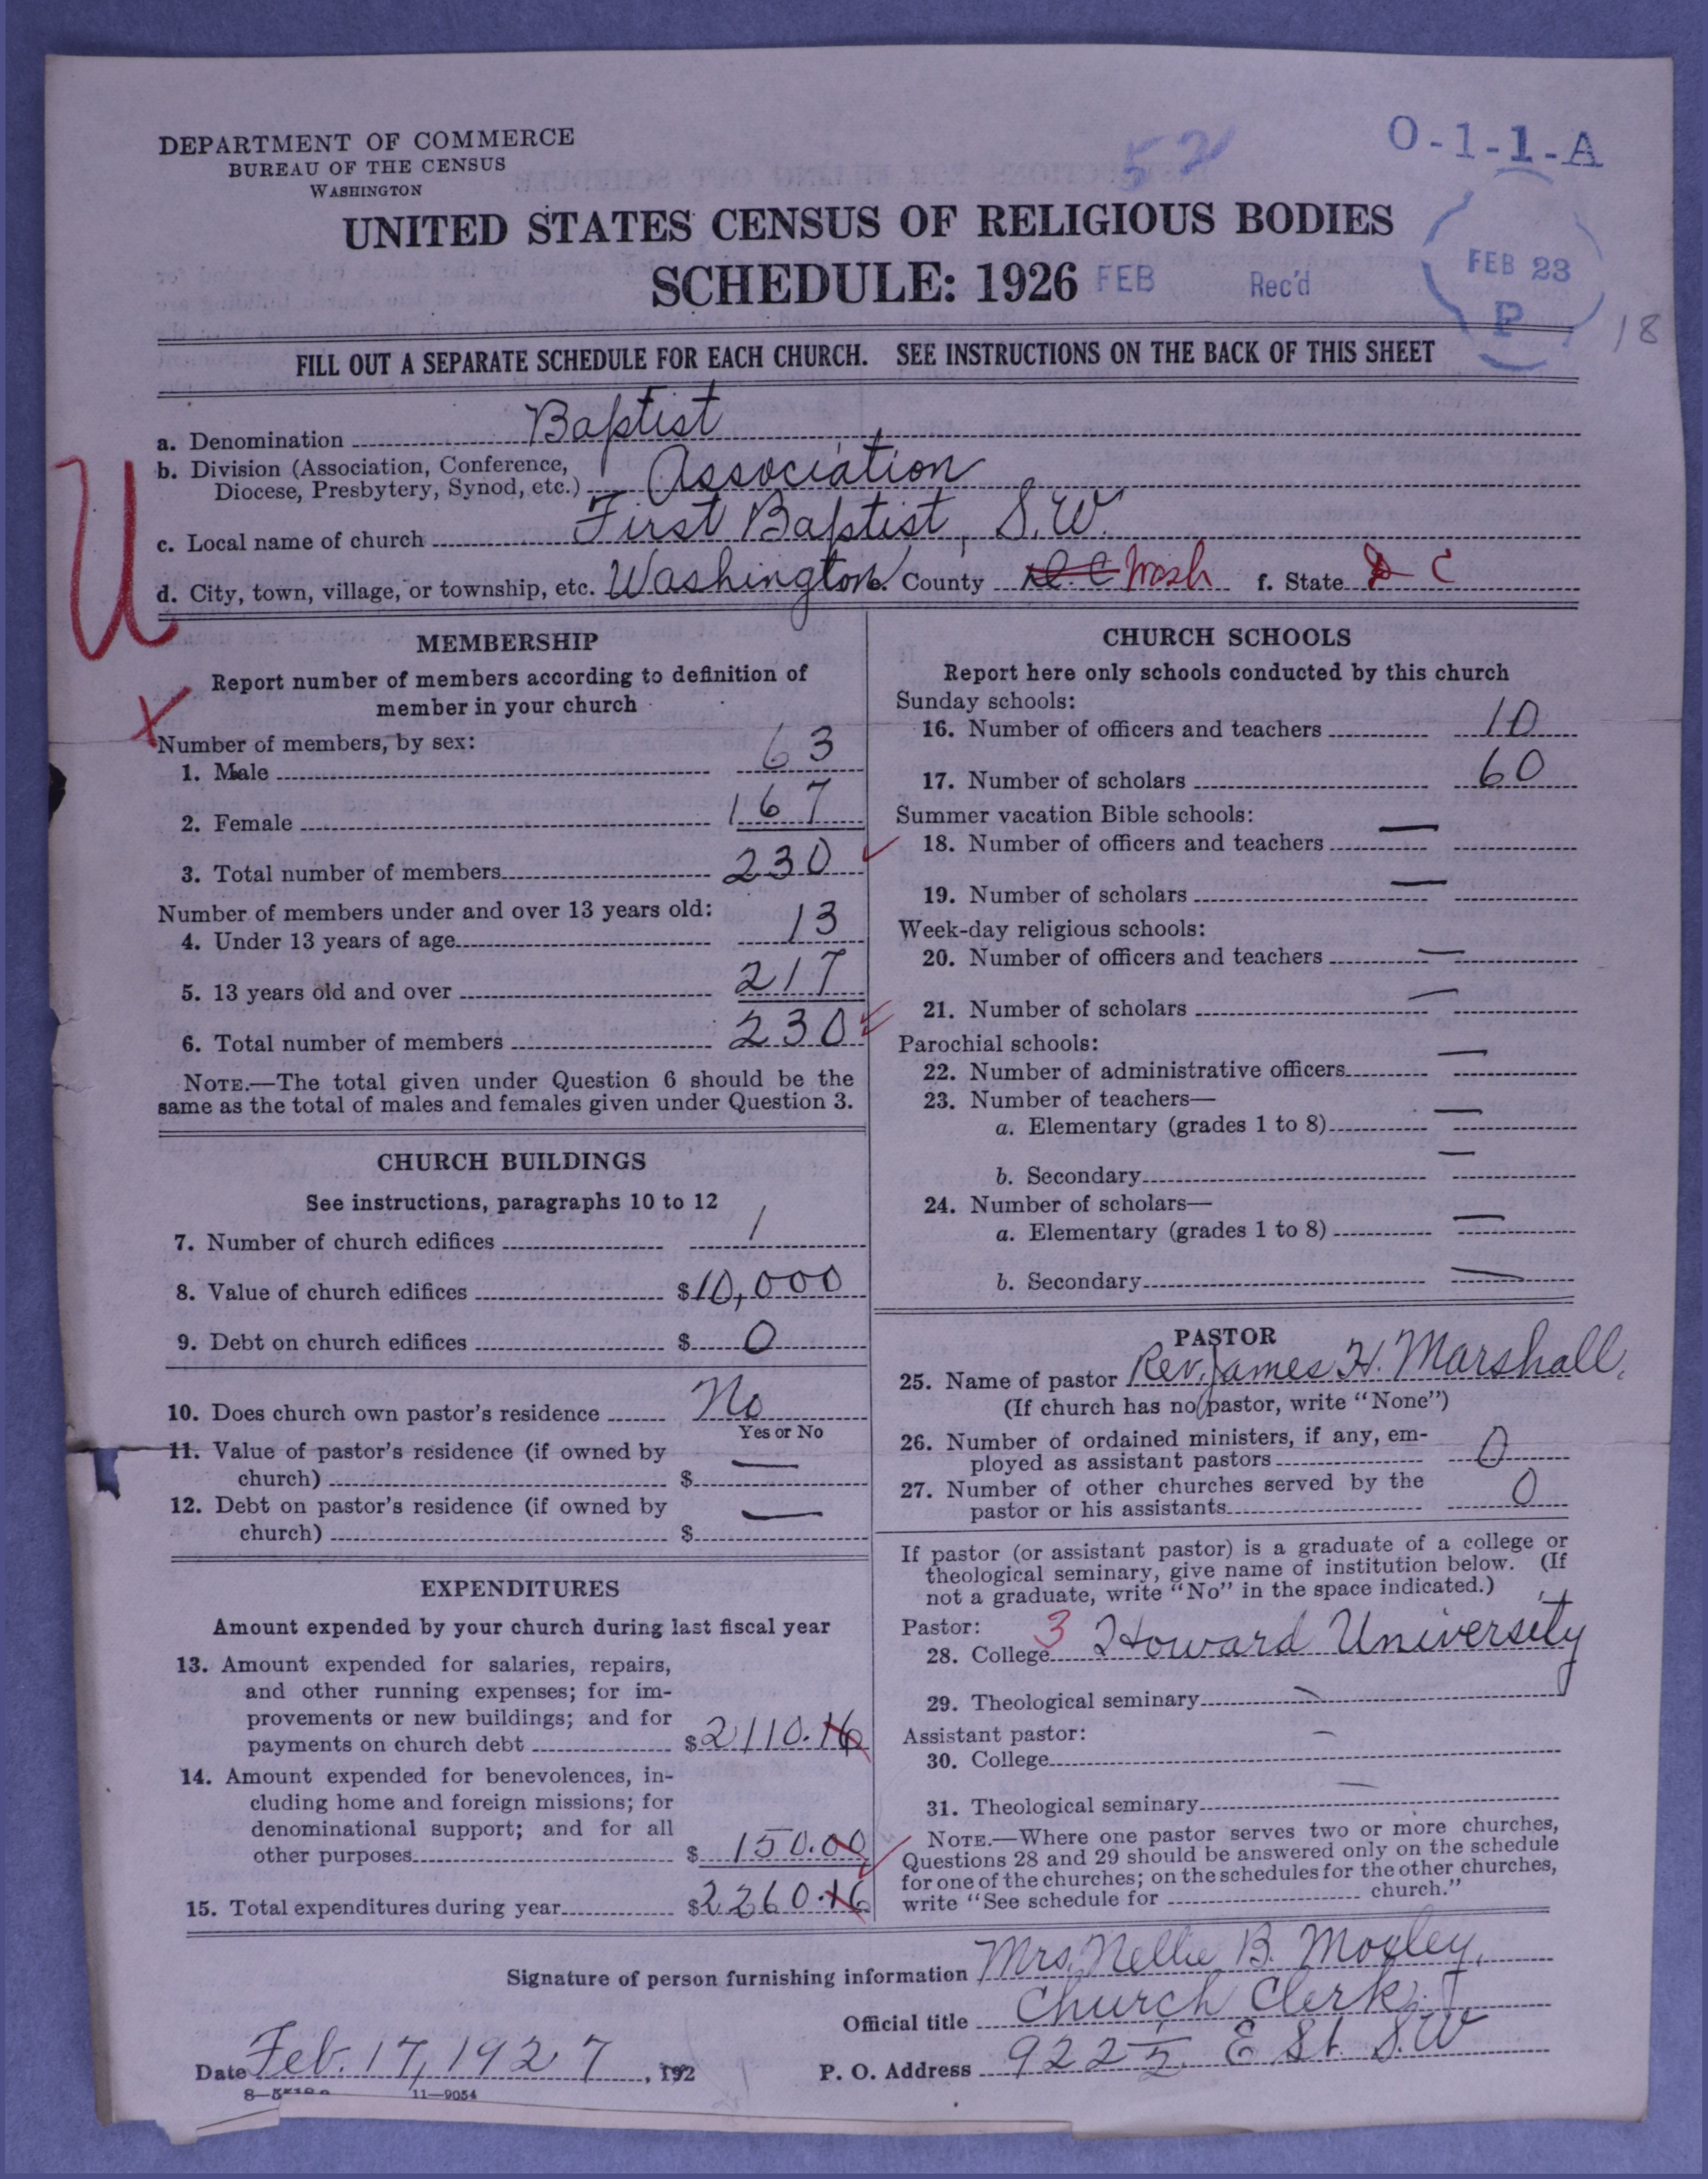 DEPARTMENT OF COMMERCE
BUREAU OF THE CENSUS
WASHINGTON
52
O-1-1-A
UNITED STATES CENSUS OF RELIGIOUS BODIES
SCHEDULE: 1926
FEB Rec'd
FEB 23
P
18
FILL OUT A SEPARATE SCHEDULE FOR EACH CHURCH. SEE INSTRUCTIONS ON THE BACK OF THIS SHEET
U
a. Denomination Baptist
b. Division (Association, Conference,
Diocese, Presbytery, Synod, etc.) Association
c. Local name of church First Baptist, S.W.
d. City, town, village, or township, etc. Washington e. County D.C. Wash f. State D C
MEMBERSHIP
Report number of members according to definition of
member in your church
X
Number of members, by sex:
1. Male 63
2. Female 167
3. Total number of members 230
Number of members under and over 13 years old:
4. Under 13 years of age 13
5. 13 years old and over 217
6. Total number of members 230
NOTE.—The total given under Question 6 should be the
same as the total of males and females given under Question 3.
CHURCH BUILDINGS
See instructions, paragraphs 10 to 12
7. Number of church edifices 1
8. Value of church edifices $10,000
9. Debt on church edifices $ 0
10. Does church own pastor's residence No
Yes or No
11. Value of pastor's residence (if owned by
church) $ —
12. Debt on pastor's residence (if owned by
church) $ —
EXPENDITURES
Amount expended by your church during last fiscal year
13. Amount expended for salaries, repairs,
and other running expenses; for im-
provements or new buildings; and for
payments on church debt $2110.16
14. Amount expended for benevolences, in-
cluding home and foreign missions; for
denominational support; and for all
other purposes $ 150.00
15. Total expenditures during year $2260.16
CHURCH SCHOOLS
Report here only schools conducted by this church
Sunday schools:
16. Number of officers and teachers 10
17. Number of scholars 60
Summer vacation Bible schools:
18. Number of officers and teachers —
19. Number of scholars —
Week-day religious schools:
20. Number of officers and teachers —
21. Number of scholars —
Parochial schools:
22. Number of administrative officers —
23. Number of teachers—
a. Elementary (grades 1 to 8) —
b. Secondary —
24. Number of scholars—
a. Elementary (grades 1 to 8) —
b. Secondary —
PASTOR
25. Name of pastor Rev. James H. Marshall,
(If church has no pastor, write "None")
26. Number of ordained ministers, if any, em-
ployed as assistant pastors 0
27. Number of other churches served by the
pastor or his assistants 0
If pastor (or assistant pastor) is a graduate of a college or
theological seminary, give name of institution below. (If
not a graduate, write "No" in the space indicated.)
Pastor: 3
28. College Howard University
29. Theological seminary —
Assistant pastor:
30. College —
31. Theological seminary —
NOTE.—Where one pastor serves two or more churches,
Questions 28 and 29 should be answered only on the schedule
for one of the churches; on the schedules for the other churches,
write "See schedule for church."
Signature of person furnishing information Mrs. Nellie B. Mosley,
Official title Church Clerk,
Date Feb. 17, 1927, 192
P. O. Address 922 1/2 E St. S.W
11—9054